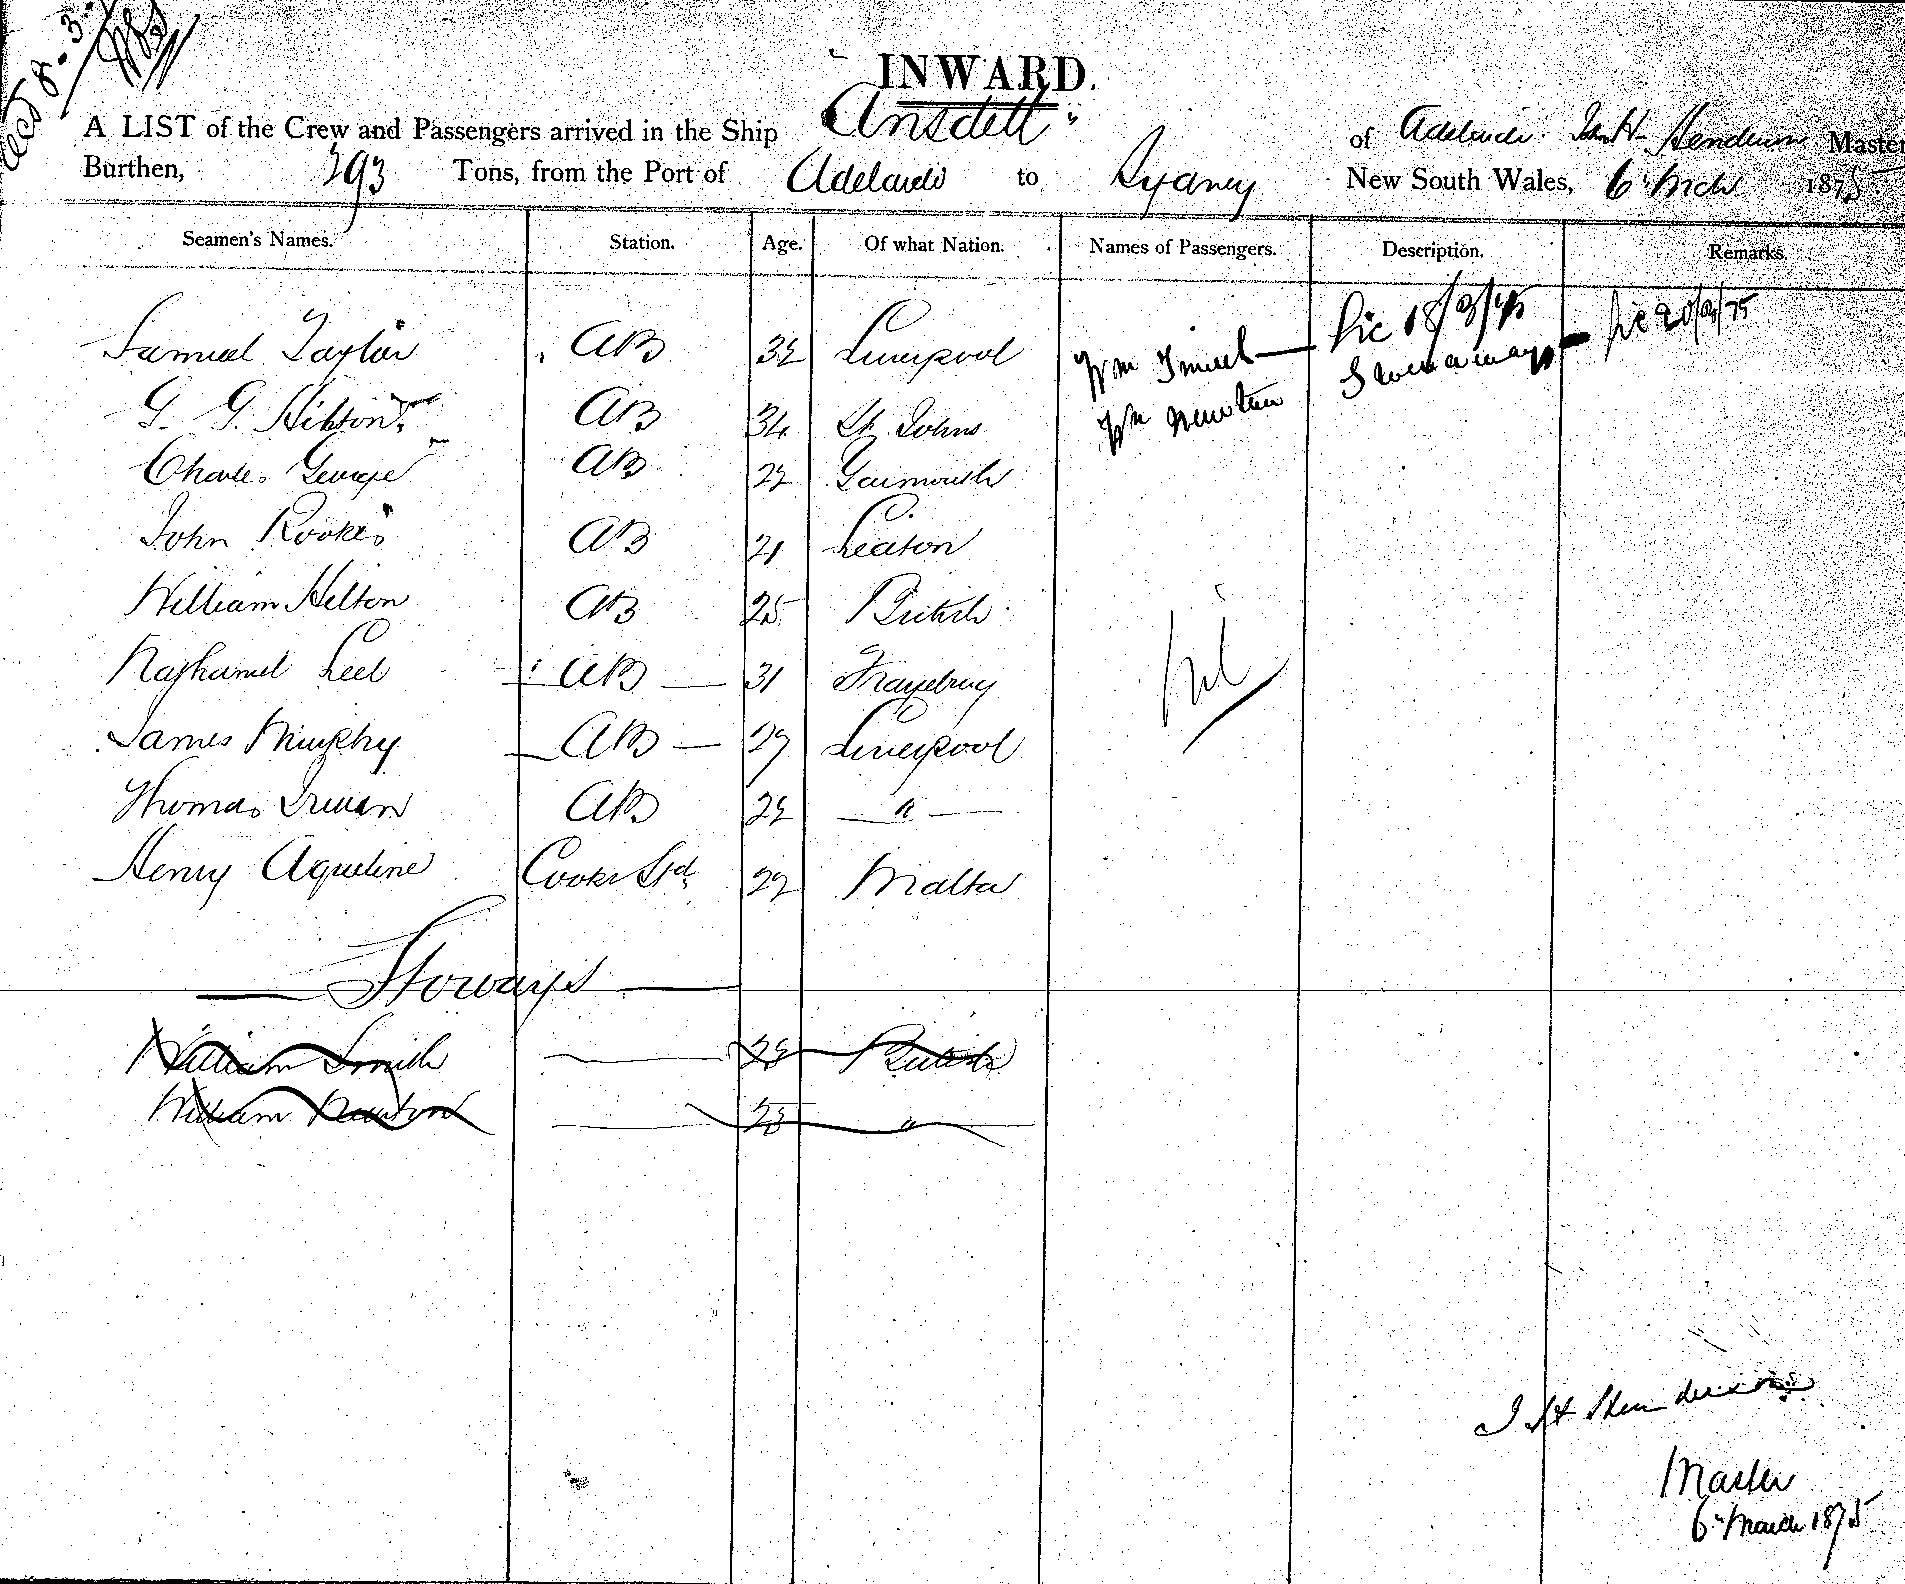 Recd 8-3-
INWARD.
A LIST of the Crew and Passengers arrived in the Ship Ansdell of Adelaide Henderson Master
Burthen, 393 Tons, from the Port of Adelaide to Sydney New South Wales, 6 Mch 1875
Seamen's Names. Station. Age. Of what Nation. Names of Passengers. Description. Remarks.
Samuel Taylor AB 32 Liverpool Wm Smith — Stowaways
G. G. AB 34 St Johns Wm Newton
Charles George AB 22 Yarmouth
John Rookes AB 21 Seaton
William Hilton AB 25 British
Leel AB — 31
James Murphy AB — 29 Liverpool
Thomas AB 22 — " —
Henry Aqueline Cook & Std 22 Malta
Nil
Stoways
William Smith 28 British
William Newton 28 "
J H Henderson
Master
6 March 1875